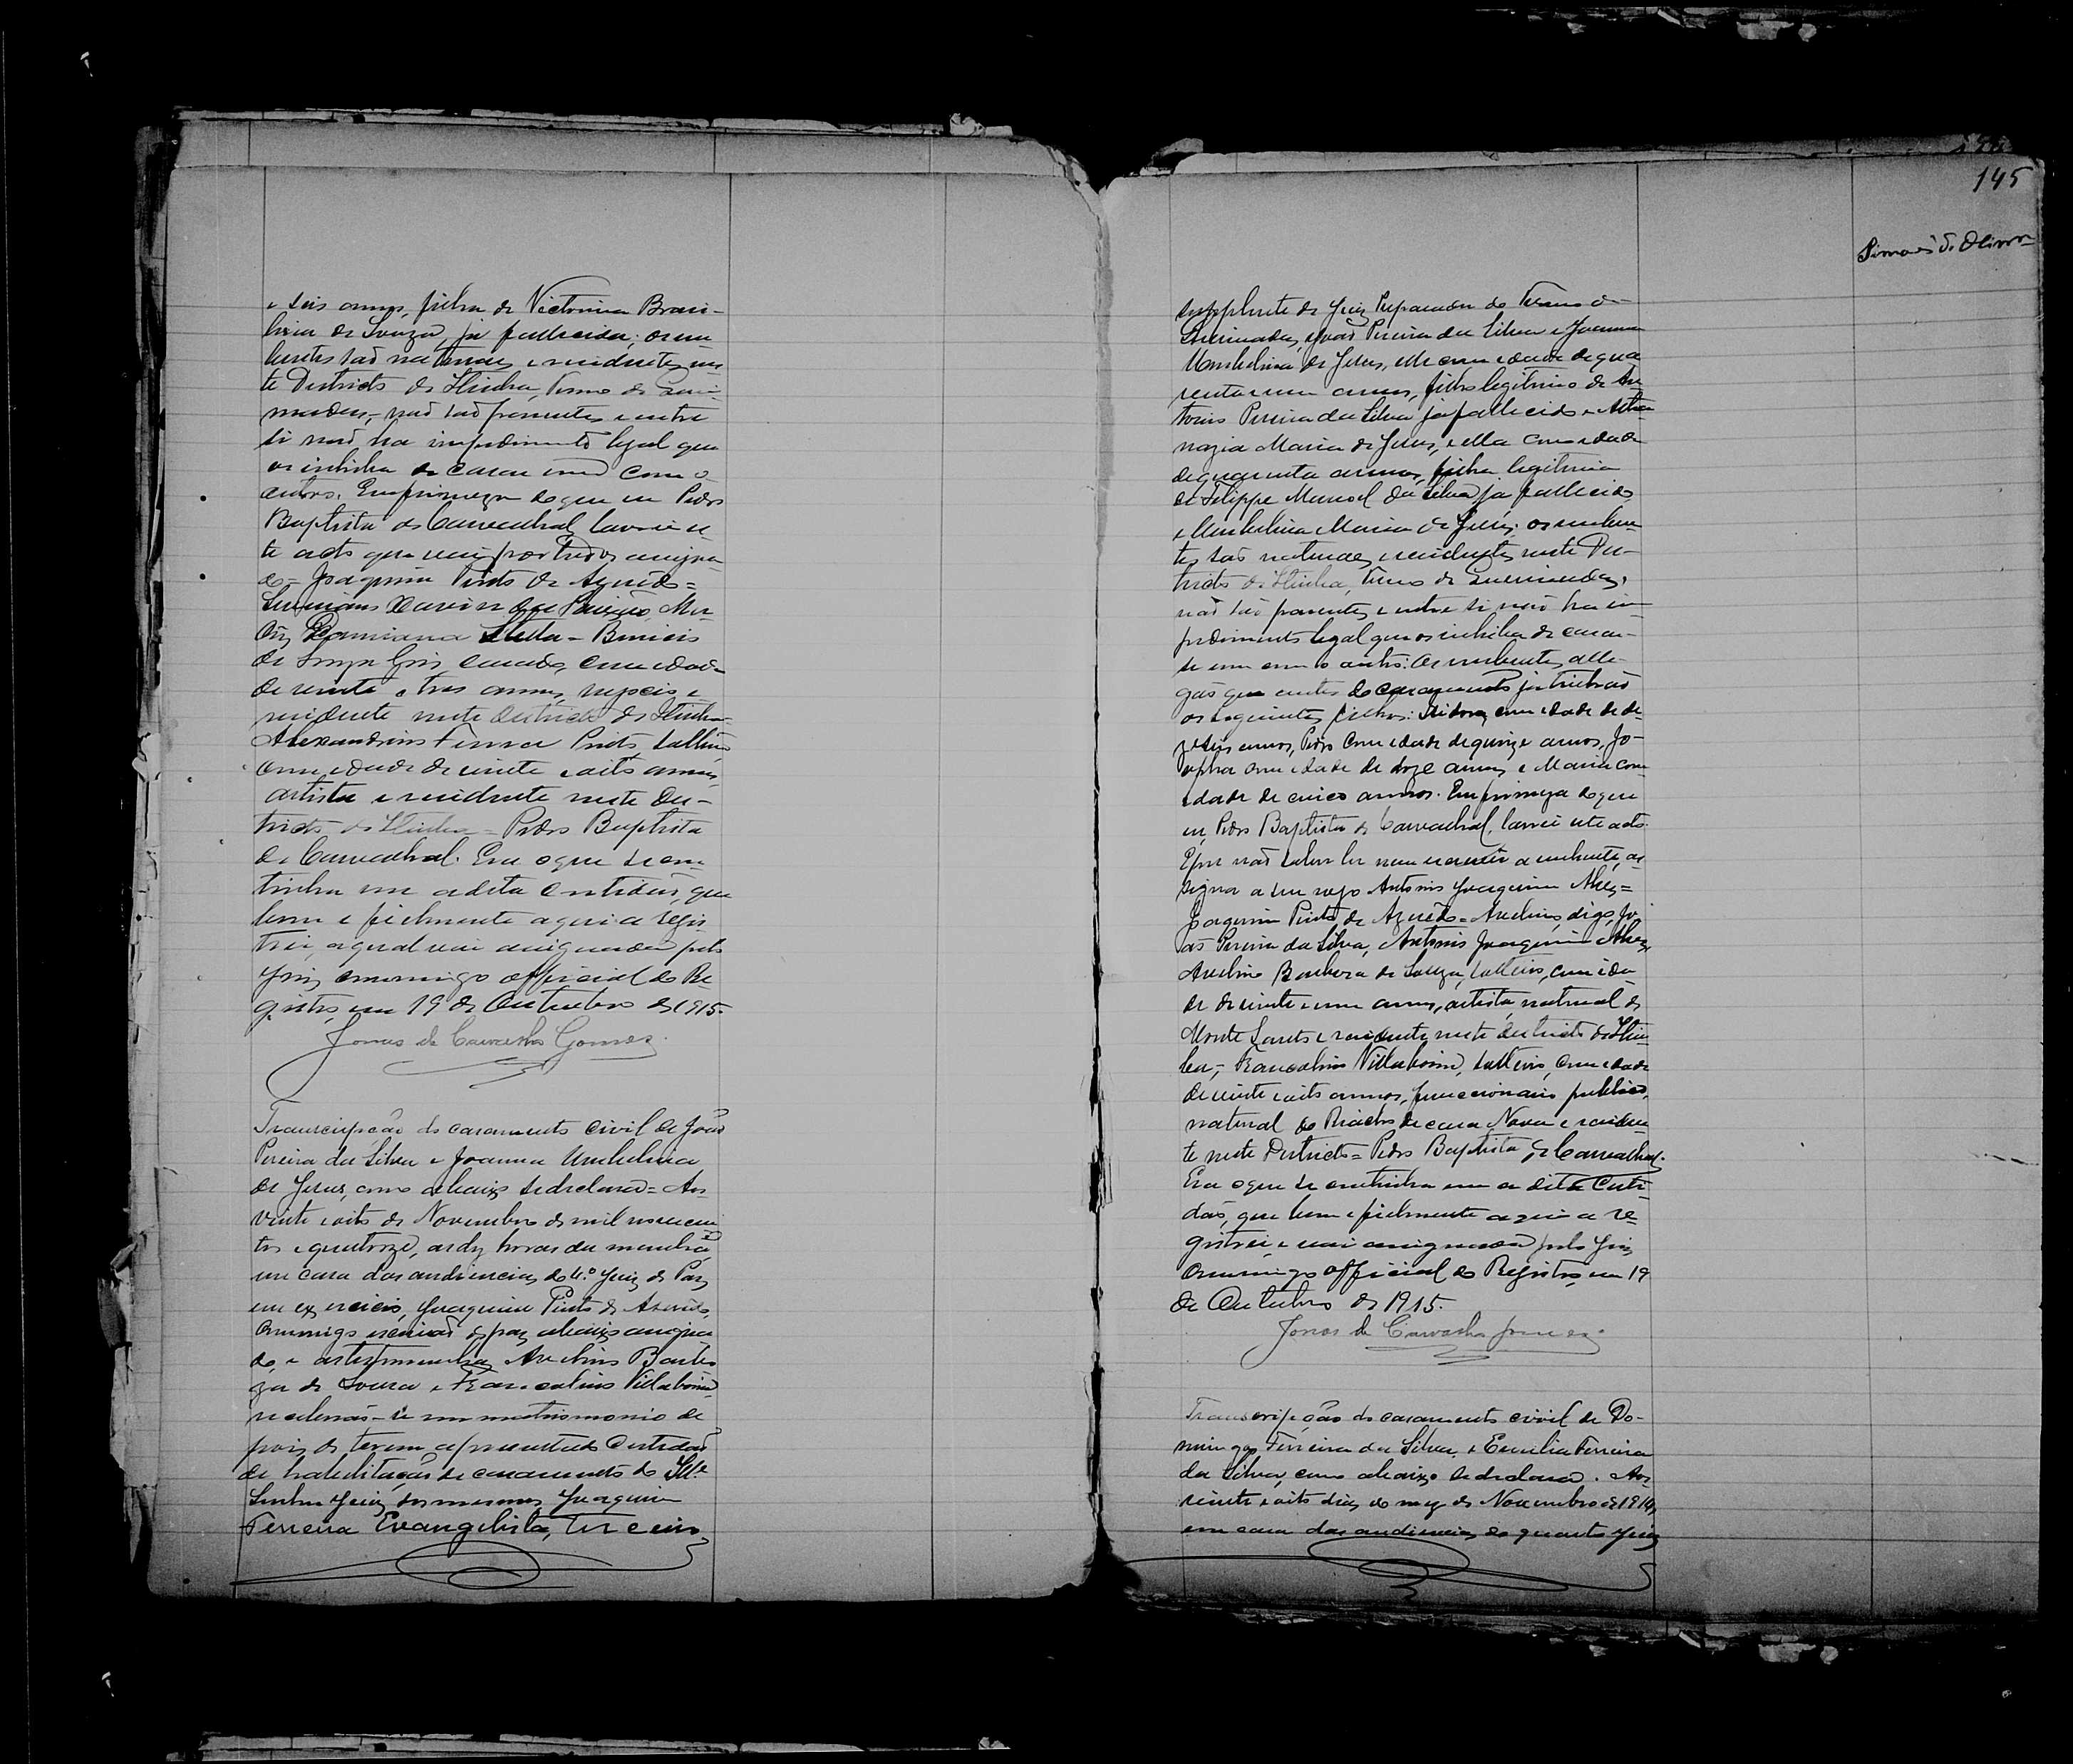 e seis annos, filha de Victorina Brasi-
lina de Souza, já fallecida; os nu-
bentes são naturaes e residentes nes-
te Districto de Itiuba, Termo de Quei-
madas, não são parentes e entre
si não ha impedimento legal que
os inhiba de casar um com o
outro. Em firmeza do que eu Pedro
Baptista de Carvalhal lavrei es-
te acto que vai por todos assigna-
do = Joaquim Pinto de Azevedo =
da Paixão, Ma-
Damiana - Benicio
de Souza Gois, casado, com edade
de vinte e tres annos, negocio e
residente neste districto de Itiuba =
Alexandrino Pinto, solteiro
com edade de vinte e oito annos,
artista e residente neste Dis-
tricto de Itiuba = Pedro Baptista
de Carvalhal. Era o que se con-
tinha em a dita certidão, que
bem e fielmente aqui a regis-
trei, a qual vai assignada pelo
Juiz commigo official do Re-
gistro, em 19 de Outubro de 1915.
Jonas de Carvalho Gomes
Transcripção do casamento civil de João
Pereira da Silva e Joanna Umbelina
de Jesus, como abaixo se declara = Aos
vinte e oito de Novembro de mil novecen-
tos e quatorze, as dez horas da manhã,
em casa das audiencias do 4.º Juiz de Paz
em exercicio, Joaquim Pinto de Azevedo,
commigo escrivão de paz abaixo assigna-
do, e as testemunhas Avelino Barbo-
za de Souza e Francolino Villaboim
receberão-se em matrimonio de
pois de terem apresentado Certidão
de habilitação de casamento do Ill.e
Senhor Juiz dos mesmos Joaquim
Ferreira Evangelista, Terceiro
145
Simões d. Oliveira
supplente do Juiz Preparador do Termo de
Queimadas, João Pereira da Silva e Joanna
Umbelina de Jesus, elle com edade de qua
renta e um annos, filho legitimo de An
tonio Pereira da Silva já fallecido e Atha
nazia Maria de Jesus, e ella com edade
de quarenta annos, filha legitima
de Felippe Manoel da Silva já fallecido
e Umbelina Maria de Jesus; os nuben-
tes são naturaes e residentes neste Dis-
tricto de Itiuba, Termo de Queimadas,
não são parentes e entre si não ha im-
pedimento legal que os inhiba de casar-
se um com o outro. Os nubentes alle-
gão que antes do casamento já tinhão
os seguintes filhos: Isidora, com edade de de-
zeseis annos, Pedro com edade de quinze annos, Jo-
sepha com edade de doze annos e Maria com
edade de cinco annos. Em firmeza do que
eu, Pedro Baptista de Carvalhal, lavrei este acto.
E por não saber ler nem escrever a nubente, as-
signa a seu rogo Antonio Joaquim Alves =
Joaquim Pinto de Azevedo = Avelino, digo, Jo-
ão Pereira da Silva, Antonio Joaquim Alves,
Avelino Barboza de Souza, solteiro, com eda-
de de vinte e um annos, artista, natural de
Monte Santo e residente neste districto de Itiu-
ba, Francolino Villaboim, solteiro, com edade
de vinte e oito annos, funccionario publico,
natural do Riacho de casa Nova e residen-
te neste Districto = Pedro Baptista de Carvalhal.
Era o que se continha em a dita Certi-
dão, que bem e fielmente aqui a re-
gistrei, e vai assignada pelo Juiz
commigo official do Registro, em 19
de Outubro de 1915.
Jonas de Carvalho Gomes
Transcripção do casamento civil de Do-
mingos Ferreira da Silva e Emilia Ferreira
da Silva, como abaixo se declara. Aos
vinte e oito dias do mez de Novembro de 1914,
em casa das audiencias do quarto Juiz